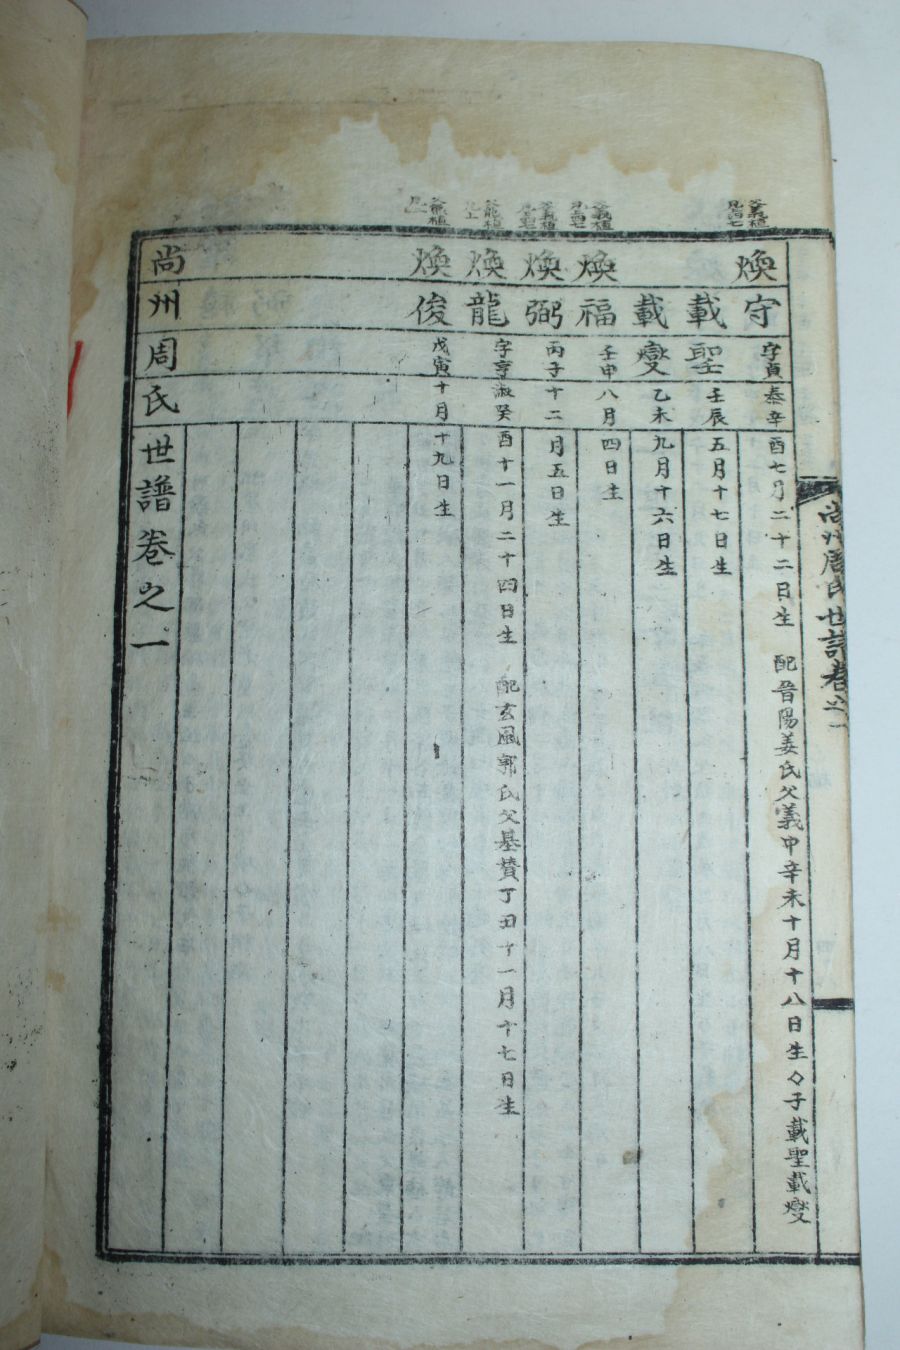 尚州周氏世譜卷之一
父義植
見百七
煥守
字寅
泰辛酉七月二十二日生 配晉陽姜氏父義中辛未十月十八日生々子載聖載燮
載聖
壬辰五月十七日生
載燮
乙未九月十六日生
煥福
壬申八月四日生
煥弼
丙子十二月五日生
煥龍
字亨淑癸酉十一月二十四日生 配玄風郭氏父基贊丁丑十一月十七日生
煥俊
戊寅十月十九日生
尚州周氏世譜卷之一